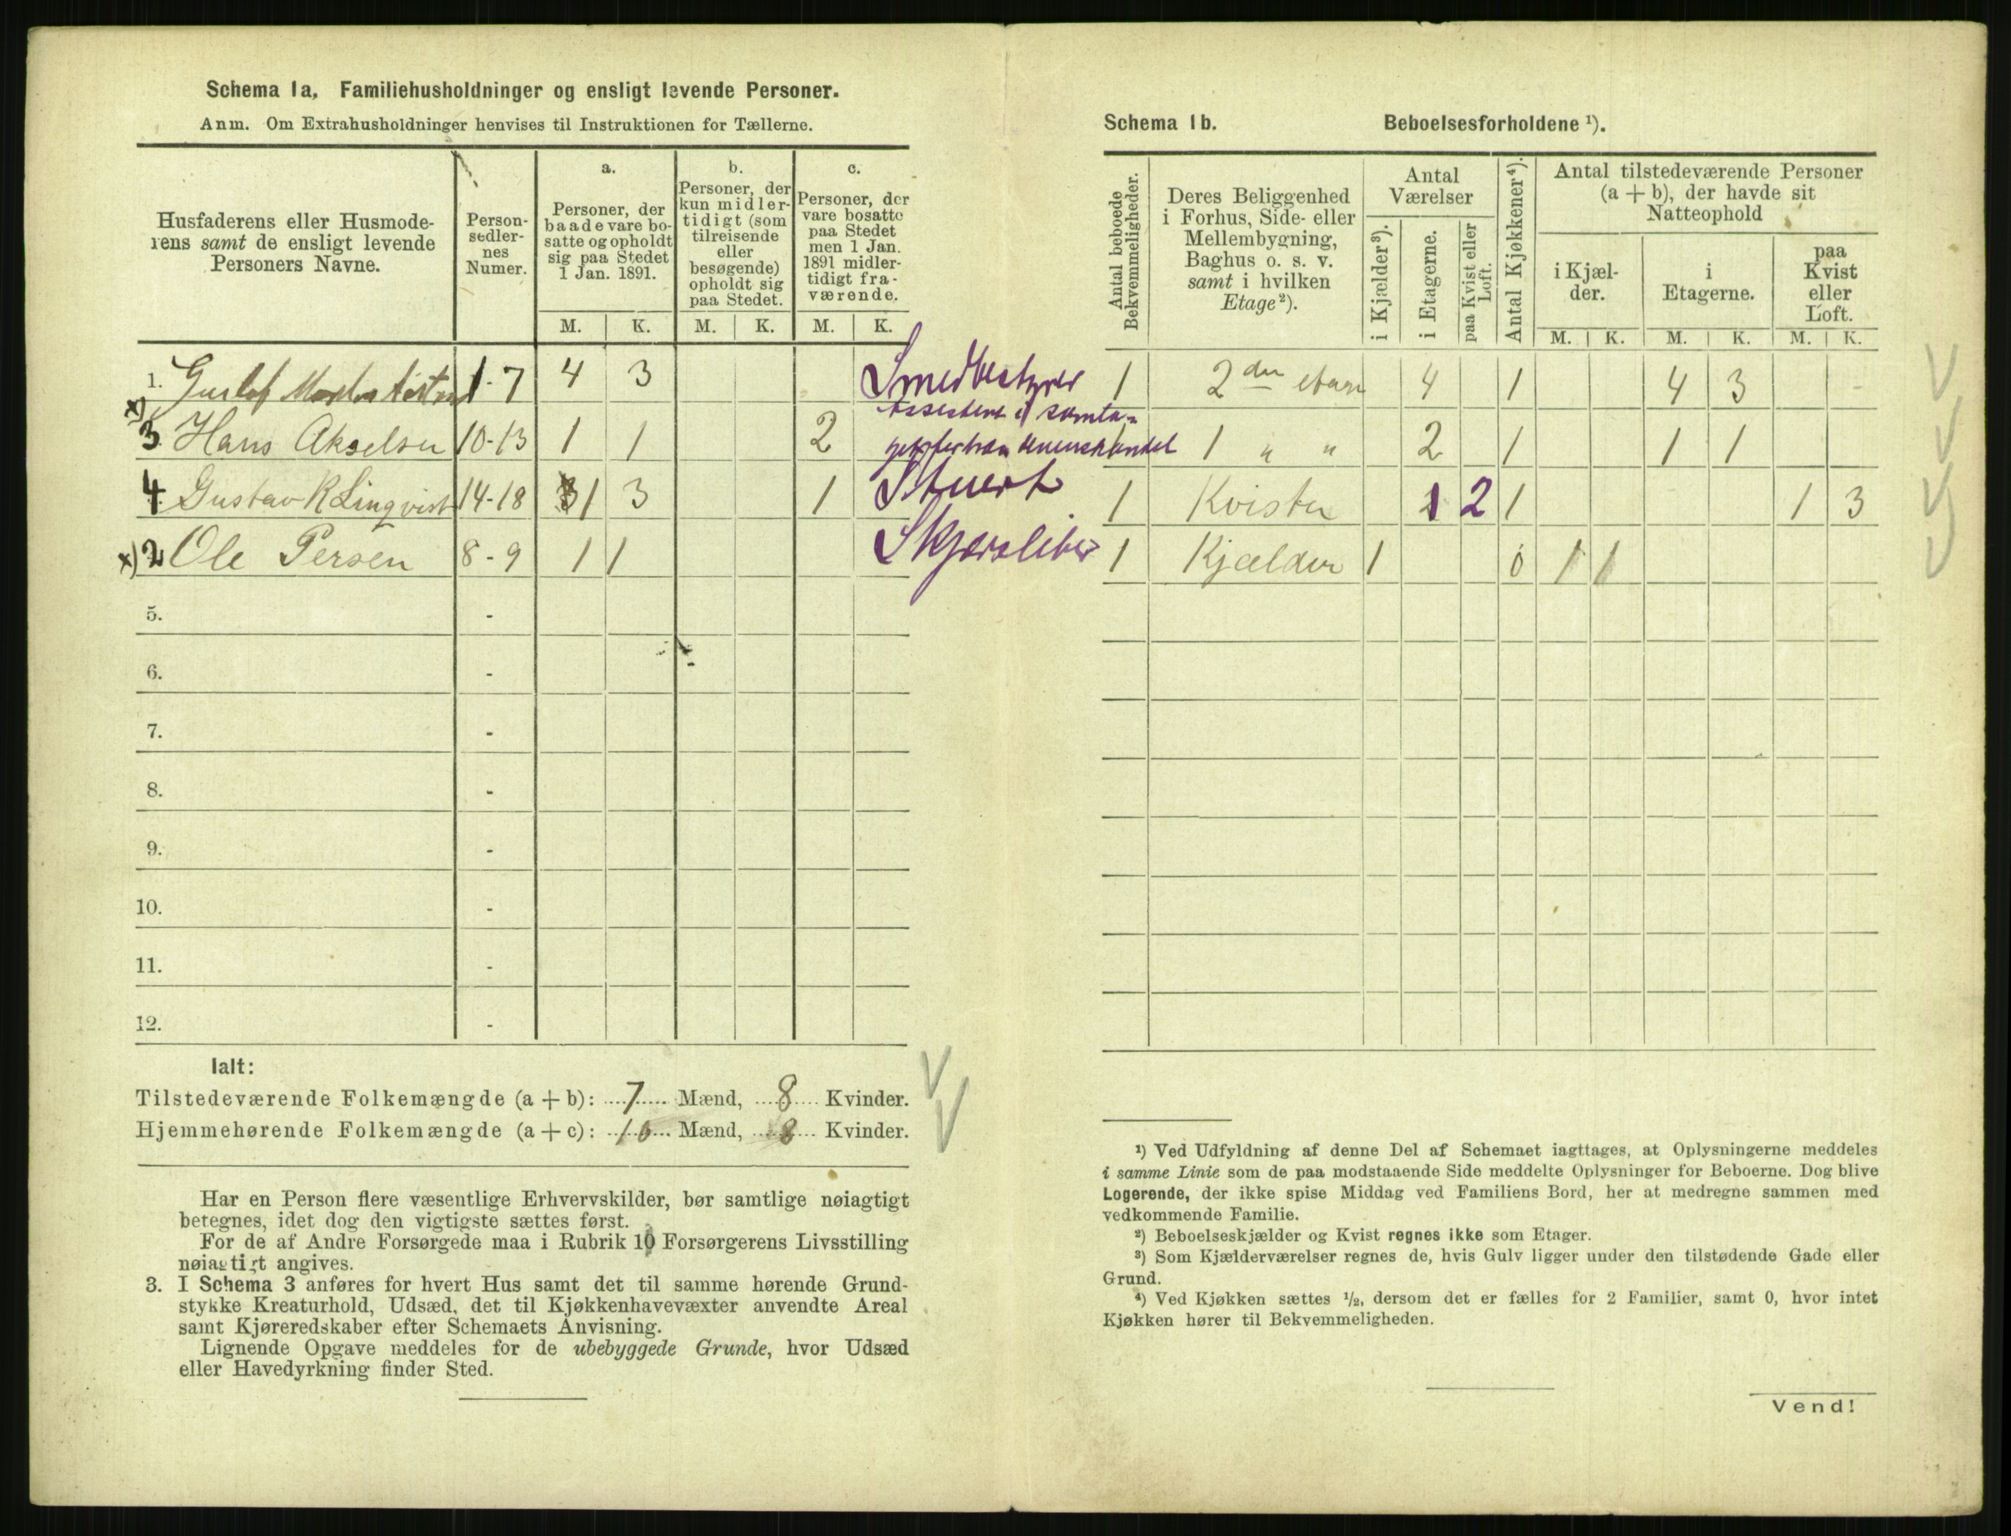 Schema 1a, Familiehusholdninger og ensligt levende Personer.
Anm. Om Extrahusholdninger henvises til Instruktionen for Tællerne.
Husfaderens eller Husmode-
rens samt de ensligt levende
Personers Navne.
Person-
sedler-
nes
Numer.
a.
Personer, der
baade vare bo-
satte og opholdt
sig paa Stedet
1 Jan. 1891.
b.
Personer, der
kun midler-
tidigt (som
tilreisende
eller
besøgende)
opholdt sig
paa Stedet.
c.
Personer, der
vare bosatte
paa Stedet
men 1 Jan.
1891 midler-
tidigt fra-
værende.
M. K. M. K. M. K.
1. Gustof 1-7 4 3
3 Hans Akselsen 10-13 1 1 2
4 Gustav R Linqvist 14-18 1 3 1 Stuert
x) 2 Ole Persen 8-9 1 1
5. -
6. -
7. -
8. -
9. -
10. -
11. -
12. -
Ialt:
Tilstedeværende Folkemængde (a + b): 7 Mænd, 8 Kvinder.
Hjemmehørende Folkemængde (a + c): 10 Mænd, 8 Kvinder.
Har en Person flere væsentlige Erhvervskilder, bør samtlige nøiagtigt
betegnes, idet dog den vigtigste sættes først.
For de af Andre Forsørgede maa i Rubrik 10 Forsørgerens Livsstilling
nøiagtigt angives.
3. I Schema 3 anføres for hvert Hus samt det til samme hørende Grund-
stykke Kreaturhold, Udsæd, det til Kjøkkenhavevæxter anvendte Areal
samt Kjøreredskaber efter Schemaets Anvisning.
Lignende Opgave meddeles for de ubebyggede Grunde, hvor Udsæd
eller Havedyrkning finder Sted.
Schema 1b. Beboelsesforholdene ¹).
Antal beboede
Bekvemmeligheder.
Deres Beliggenhed
i Forhus, Side- eller
Mellembygning,
Baghus o. s. v.
samt i hvilken
Etage²).
Antal
Værelser
i Kjælder³).
i Etagerne.
paa Kvist eller
Loft.
Antal Kjøkkener⁴).
Antal tilstedeværende Personer
(a + b), der havde sit
Natteophold
i Kjæl-
der.
i
Etagerne.
paa
Kvist
eller
Loft.
M. K. M. K. M. K.
1 2den etage 4 1 4 3 -
1 " " 2 1 1 1
1 Kvisten 1 2 1 1 3
1 Kjælder 1 0 1 1
¹) Ved Udfyldning af denne Del af Schemaet iagttages, at Oplysningerne meddeles
i samme Linie som de paa modstaaende Side meddelte Oplysninger for Beboerne. Dog blive
Logerende, der ikke spise Middag ved Familiens Bord, her at medregne sammen med
vedkommende Familie.
²) Beboelseskjælder og Kvist regnes ikke som Etager.
³) Som Kjælderværelser regnes de, hvis Gulv ligger under den tilstødende Gade eller
Grund.
⁴) Ved Kjøkken sættes ½, dersom det er fælles for 2 Familier, samt 0, hvor intet
Kjøkken hører til Bekvemmeligheden.
Vend!